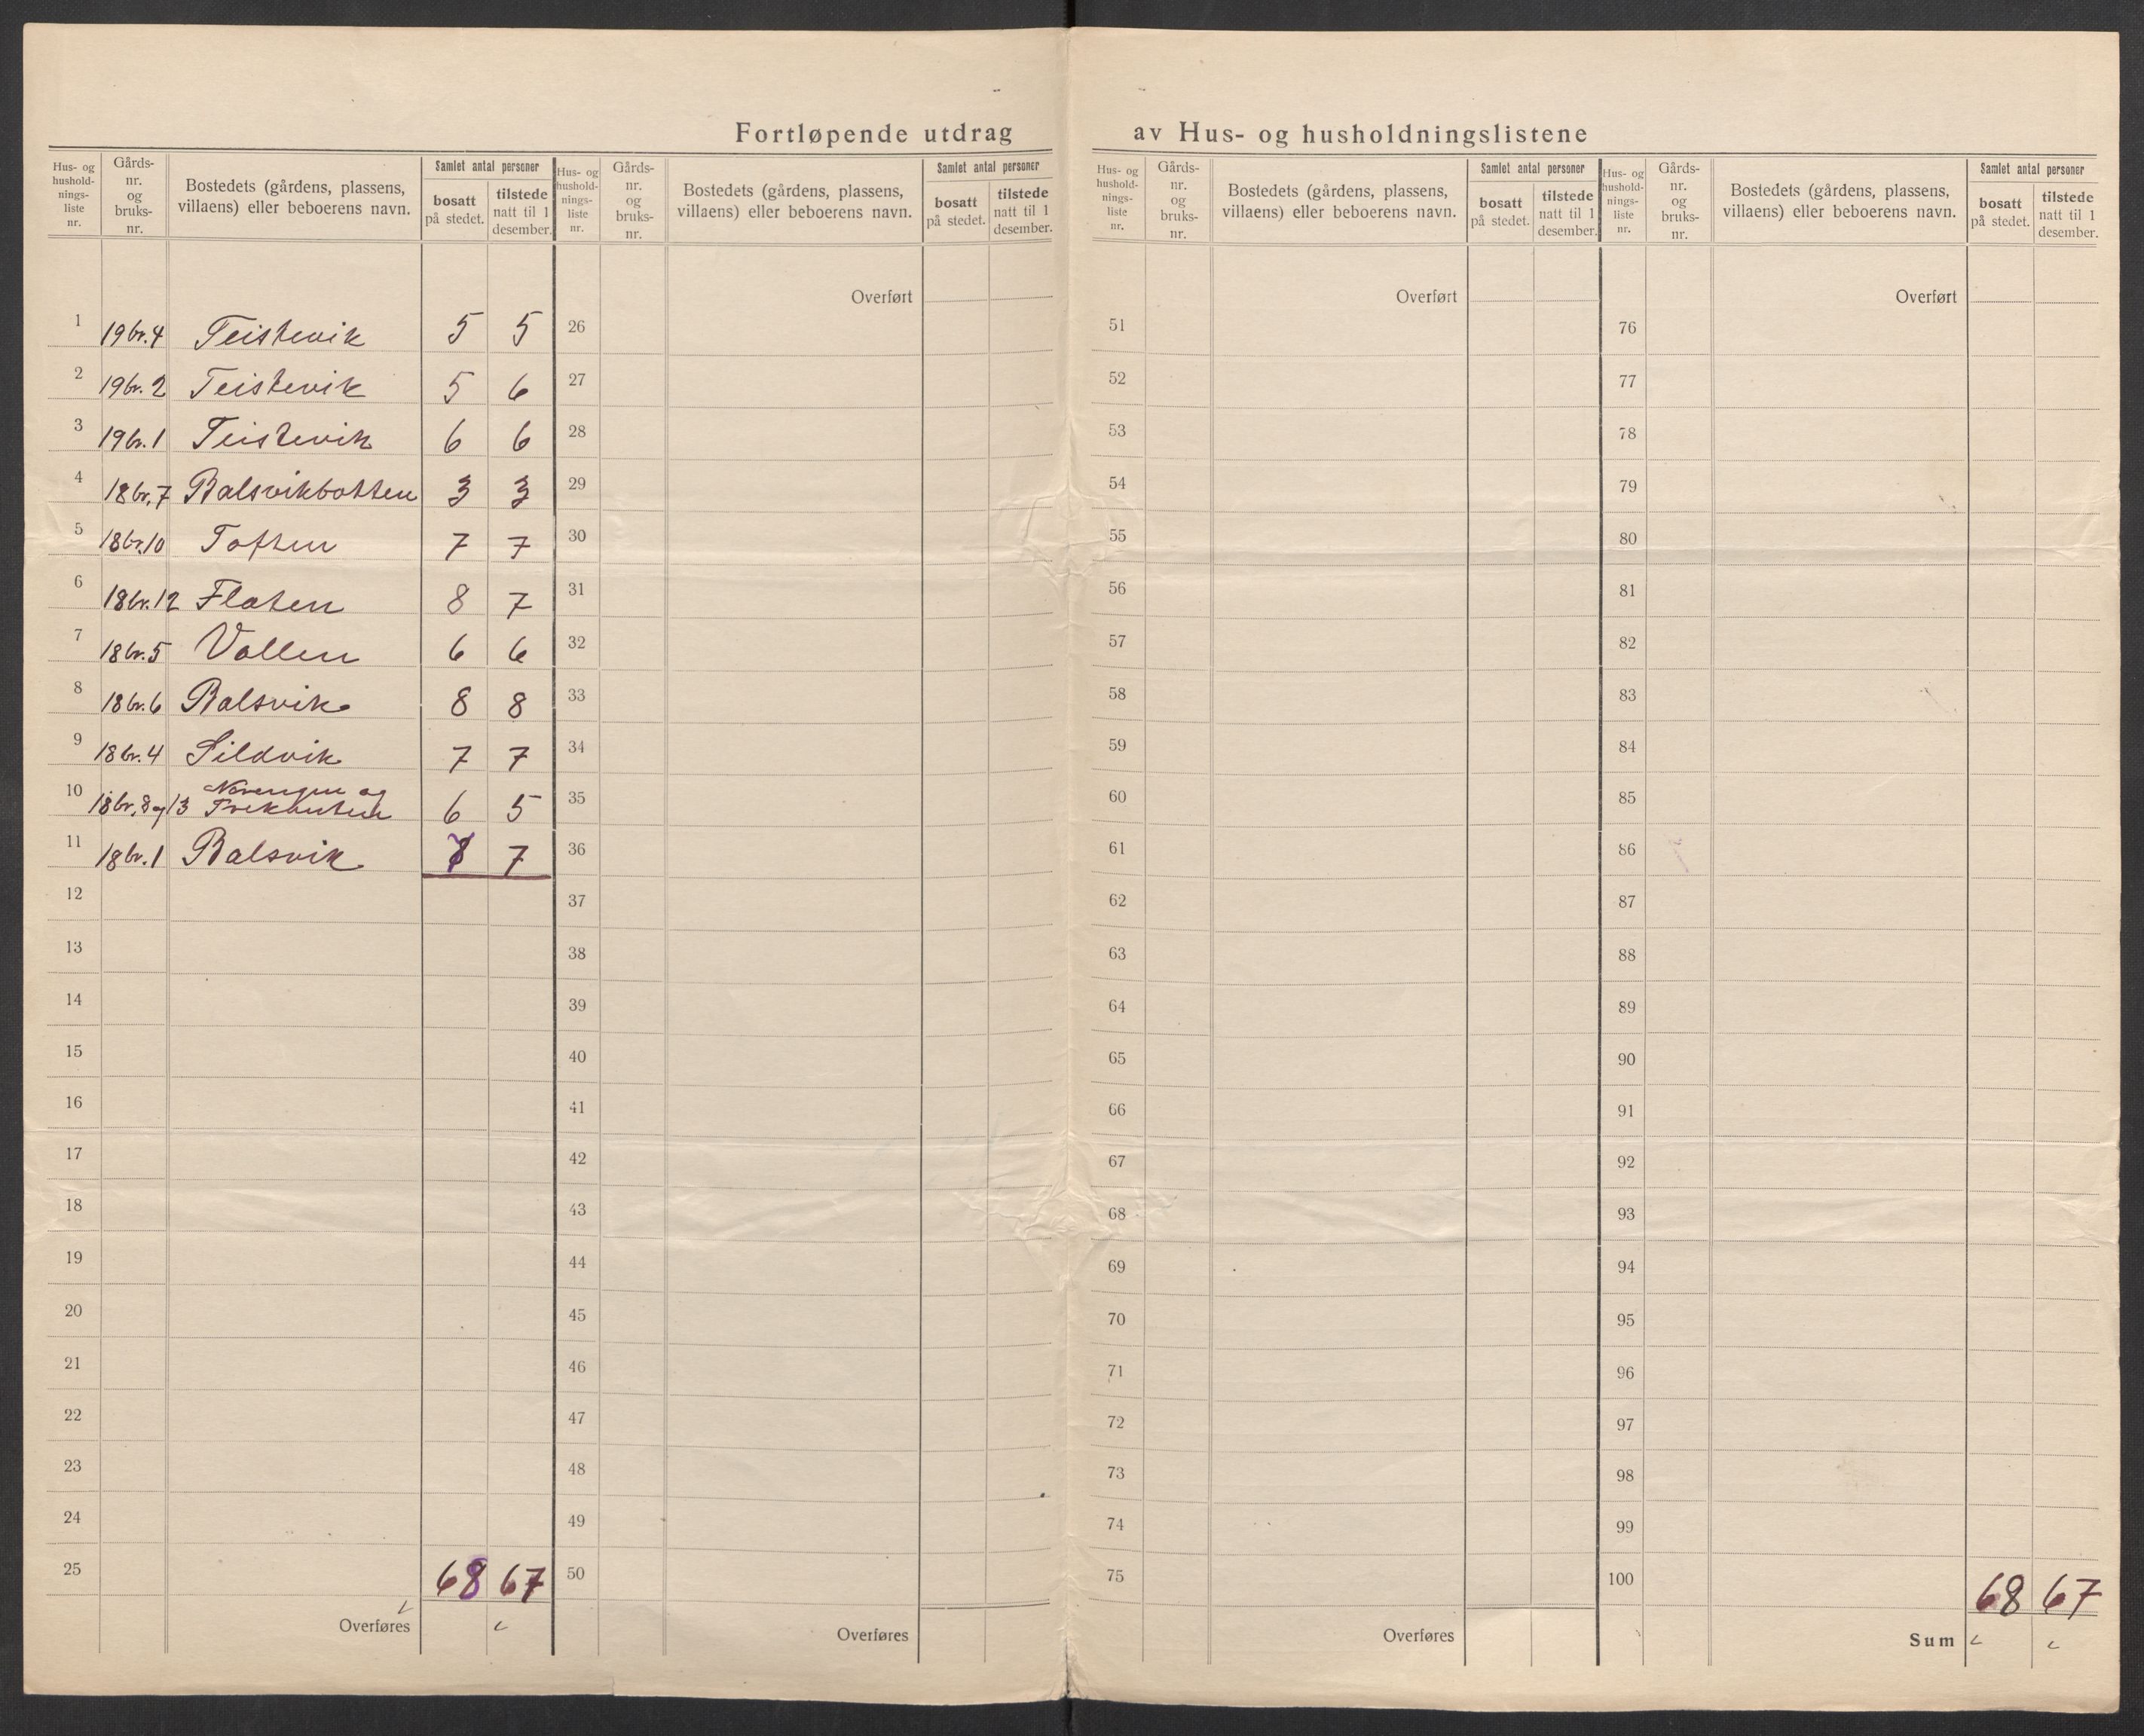 Fortløpende utdrag av Hus- og husholdningslistene
Hus- og husholdnings-liste nr. Gårds-nr. og bruks-nr. Bostedets (gårdens, plassens, villaens) eller beboerens navn. Samlet antal personer bosatt på stedet. tilstede natt til 1 desember.
Hus- og husholdnings-liste nr. Gårds-nr. og bruks-nr. Bostedets (gårdens, plassens, villaens) eller beboerens navn. Samlet antal personer bosatt på stedet. tilstede natt til 1 desember.
Hus- og husholdnings-liste nr. Gårds-nr. og bruks-nr. Bostedets (gårdens, plassens, villaens) eller beboerens navn. Samlet antal personer bosatt på stedet. tilstede natt til 1 desember.
Hus- og husholdnings-liste nr. Gårds-nr. og bruks-nr. Bostedets (gårdens, plassens, villaens) eller beboerens navn. Samlet antal personer bosatt på stedet. tilstede natt til 1 desember.
1 19 br. 4 Teistevik 5 5
2 19 br. 2 Teistevik 5 6
3 19 br. 1 Teistevik 6 6
4 18 br. 7 Balsvikbotten 3 3
5 18 br. 10 Toften 7 7
6 18 br. 12 Flaten 8 7
7 18 br. 5 Vollen 6 6
8 18 br. 6 Balsvik 8 8
9 18 br. 4 Sildvik 7 7
10 18 br. 8 og 13 og 6 5
11 18 br. 1 Balsvik 7 7
12
13
14
15
16
17
18
19
20
21
22
23
24
25 68 67
Overføres
Overført
26
27
28
29
30
31
32
33
34
35
36
37
38
39
40
41
42
43
44
45
46
47
48
49
50
Overføres
Overført
51
52
53
54
55
56
57
58
59
60
61
62
63
64
65
66
67
68
69
70
71
72
73
74
75
Overføres
Overført
76
77
78
79
80
81
82
83
84
85
86
87
88
89
90
91
92
93
94
95
96
97
98
99
100
68 67
Sum